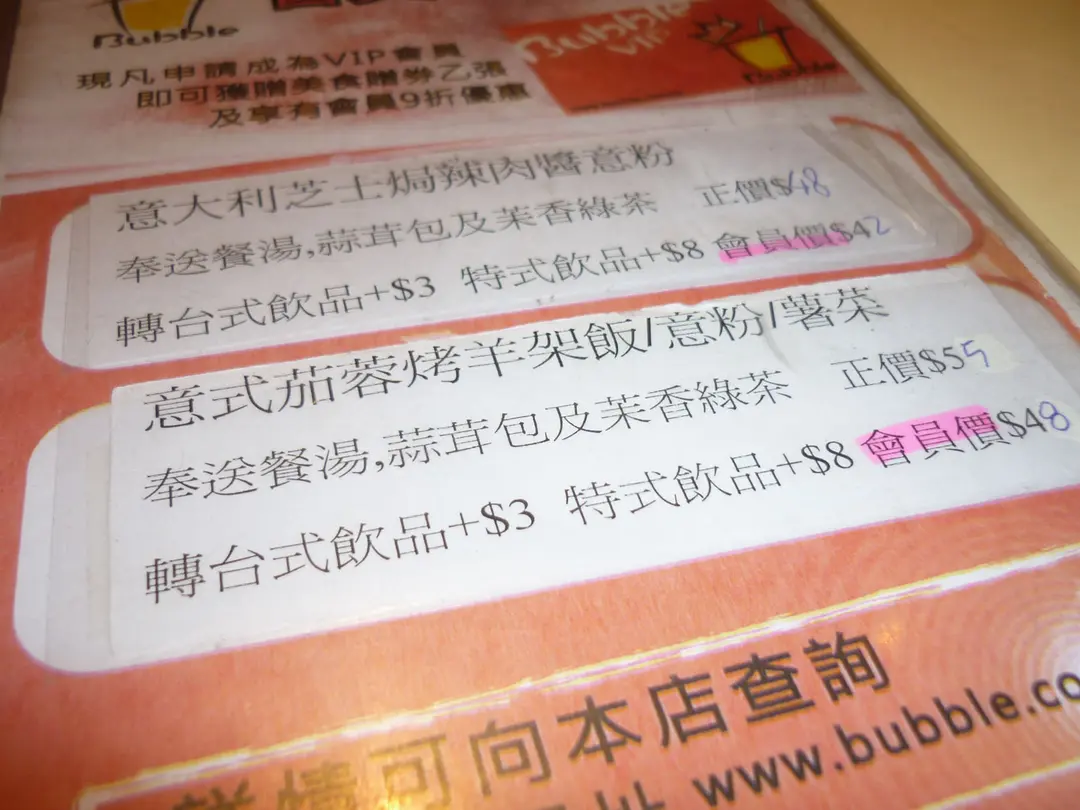 Bubble
現凡申請成為VIP會員
即可獲贈美食贈券乙張
及享有會員9折優惠
Bubble
VIP
Bubble
意大利芝士焗辣肉醬意粉
奉送餐湯,蒜茸包及茉香綠茶 正價$48
轉台式飲品+$3 特式飲品+$8 會員價$42
意式茄蓉烤羊架飯/意粉/薯菜
奉送餐湯,蒜茸包及茉香綠茶 正價$55
轉台式飲品+$3 特式飲品+$8 會員價$48
詳情可向本店查詢
www.bubble.co